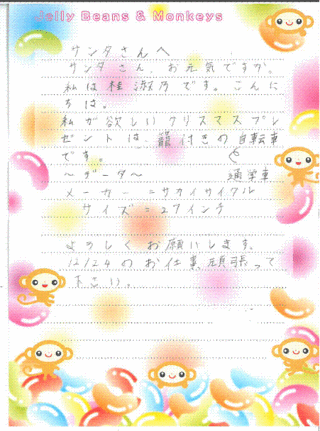 Jelly Beans & Monkeys
サンタさんへ
サンタさん お元気ですか。
私は桂 です。こんに
ちは。
私が欲しいクリスマスプレ
ゼントは、籠付きの自転車
です。
〜データ〜 通学車
メーカー=サカイサイクル
サイズ=27インチ
よろしくお願いします。
12/24のお仕事頑張って
下さい。